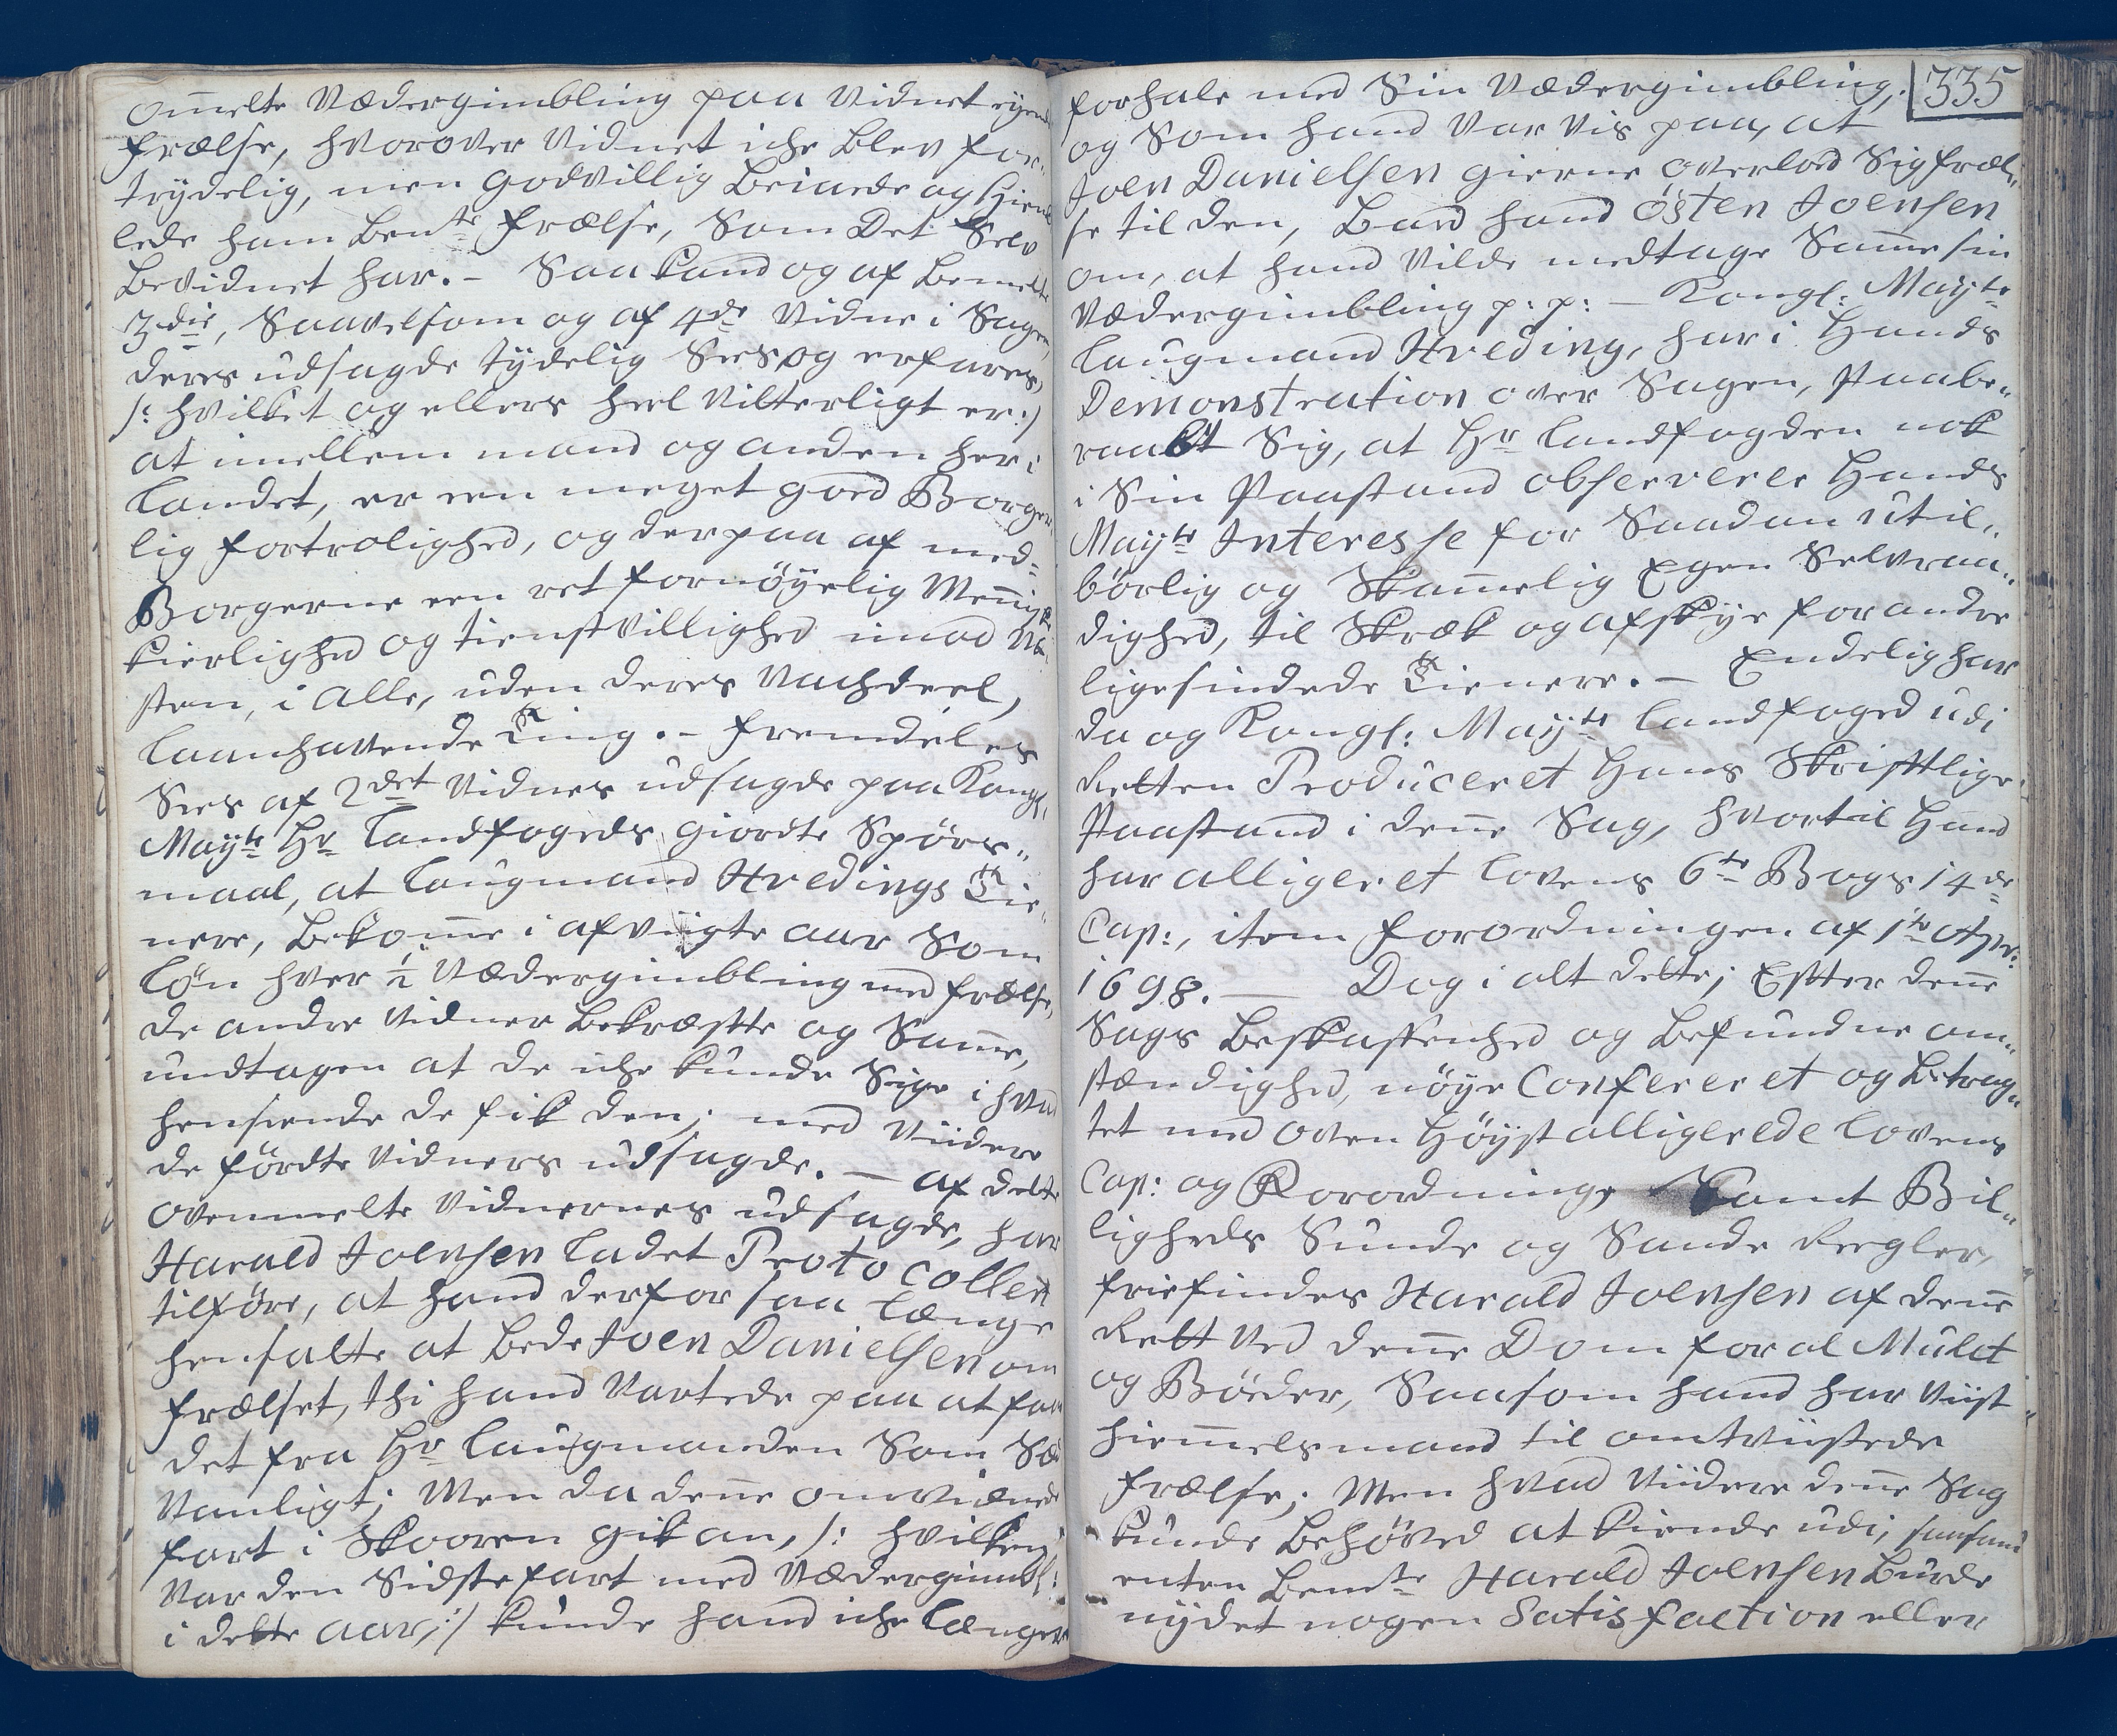 om̅elte Vædergimbling paa Vidnet eÿende
frælse, hvorover Vidnet iche blev for-
trÿdelig, men godvillig beiaede og hiem
lede ham bem̅te frælse, Som Det Selv
bevidnet har. – Saa kand og af bemelte
3die, Saavelsom og af 4de Vidne i Sagen,
deres udsagde tÿdelig Sees og erfares,
/: hvilket og ellers heel Vitterligt er :/
at imellem mand og anden her i
Landet, er een meget goed Borger
lig fortrolighed, og derpaa af med-
Borgerne een ret fornöÿelig Men̅iske
kierlighed og tienstvillighed imod Næ-
sten, i alle, uden deres Nachdeel,
laanhavende Ting. – fremdeles
Sees af 2det Vidnes udsagde paa Kongl:
Maÿts Hr Landfogeds giordte Spörs-
maal, at Laugmand Hvedings Tie-
nere, bekom̅e i afvigte aar Som
lön hver ½ Vædergimbling med frælse,
de andre Vidner bekræfte og Sam̅e,
undtagen at de iche kunde Sige i hvad
henseende de fik den; med Viidere
de fördte Vidners udsagde. – af dette
ovenmelte Vidnernes udsagde, har
Harald Joensen ladet Protocollen
tilföre, at hand derfor saa længe
hensatte at bede Joen Danielsen om
frælset, thi hand Vartede paa at faae
det fra Hr Laugmanden Som Sæd
Vanligt; Men da den̅e omvidnede
fart i Skooren gik an, /: hvilken
Var den Sidste fart med Vædergimbl:
i dette aar, :/ kunde hand iche længere
335
forhale med Sin Vædergimbling,
og Som hand Var Vis paa, at
Joen Danielsen gierne overlod Sig fræl-
se til den, bad hand östen Joensen
om, at hand Vilde medtage Sam̅e sin
Vædergimbling p: p: – Kongl: Maÿts
Laugmand Hveding, har i Hands
Demonstration over Sagen, Paabe-
raabt Sig, at Hr Landfogden nok
i Sin Paastand observerer Hands
Maÿts Interesse for Saadan util-
börlig og Skam̅elig Egen Selvraa-
dighed, til Skræk og afskÿe for andre
ligesindede Tienere. – Endelig har
da og Kongl: Maÿts Landfoged udi
Retten Produceret Hans Skriftlige
Paastand i den̅e Sag, hvortil Hand
har alligeret Lovens 6te Bogs 14de
Cap:, item forordningen af 1te Apr:
1698. — Dog i alt dette; Efter den̅e
Sags beskaffenhed og befundne om-
stændighed, nöÿe Confereret og betrag-
tet med oven Höÿst alligerede Lovens
Cap: og Forordning, Samt Bil-
ligheds Sunde og Sande Reegler,
friefindes Harald Joensen af den̅e
Rett Ved den̅e Dom for al Mulct
og Böeder, Saasom hand har Viist
hiem̅elsmand til omtviistede
frælse; Men hvad Viidere den̅e Sag
kunde behöved at kiende udi, saasom
enten bem̅te Harald Joensen burde
nÿdet nogen Satisfaction eller